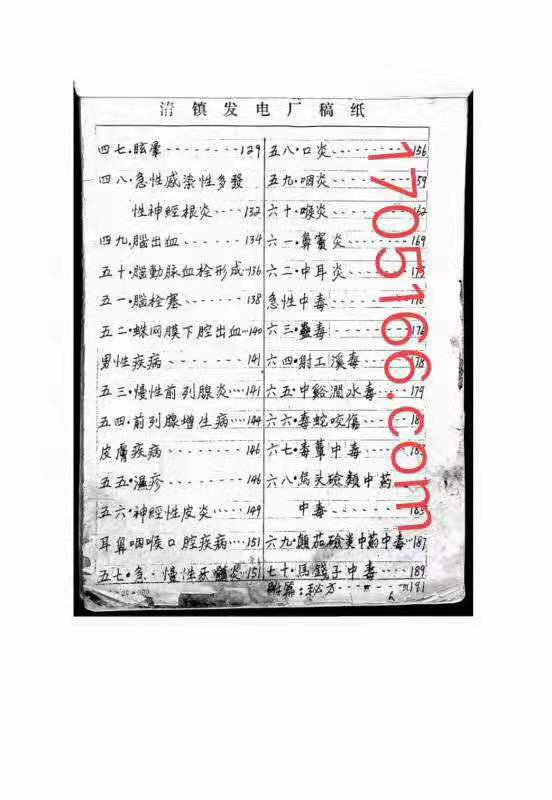 清镇发电厂稿纸
四七.眩暈--------129
四八.急性感染性多發
性神經根炎----132
四九.腦出血-------134
五十.腦動脉血栓形成-136
五一.腦栓塞-------138
五二.蛛网膜下腔出血--140
男性疾病---------141
五三.慢性前列腺炎---141
五四.前列腺增生病---144
皮膚疾病---------146
五五.濕疹--------146
五六.神經性皮炎----149
耳鼻咽喉口腔疾病----151
五七.急.慢性牙髓炎-151
五八.口炎--------156
五九.咽炎--------159
六十.喉炎
六一.鼻竇炎-------169
六二.中耳炎
急性中毒
六三.蠱毒
六四.射工溪毒-----178
六五.中谿澗水毒---179
六六.毒蛇咬傷
六七.毒蕈中毒
六八.烏头碱類中葯
中毒
六九.顛茄碱类中葯中毒-187
七十.馬錢子中毒----189
附篇:秘方--------191
1705166.com